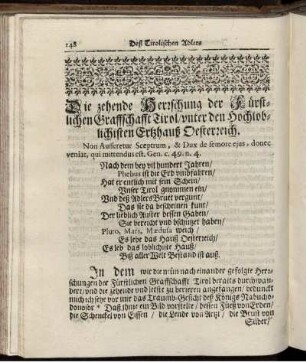 148 Deß Tirolischen Adlers
Die zehende Herrschung der Fürst-
lichen Graffschafft Tirol/ vnter den Hochlob-
lichisten Ertzhauß Oesterreich.
Non Auferetur Sceptrum, & Dux de femore ejus, donec
veniat, qui mittendus est. Gen. c. 49. n. 4.
Nach dem bey vil hundert Jahren/
Phebus ist die Erd vmbfahren/
Hat er entlich mit sein Schein/
Vnser Tirol gnommen ein/
Vnd deß Adlers Brut vergunt/
Das sie da bescheinen kunt/
Der lieblich Auster dessen Gaben/
Sie bereicht vnd bschützet haben/
Pluto, Mars, Medusa weich/
Es lebe das Hauß Oesterreich/
Es leb das loblichiste Hauß/
Biß aller Welt Bestand ist auß.
In dem wie die nun nach einander gefolgte Herr-
schungen der Fürstlichen Graffschafft Tirol beraits durchwan-
dert/ vnd die zehende vnd letste zubetretten angefangen/ bedunckt
mich/ ich sehe vor mir das Traumb-Gesicht deß Königs Nabucho-
donosor * Daß ihme ein Bild vorstelte/ dessen Füeß von Erden/
die Schenckel von Eissen/ die Lende von Artzt/ die Brust von
Silber/